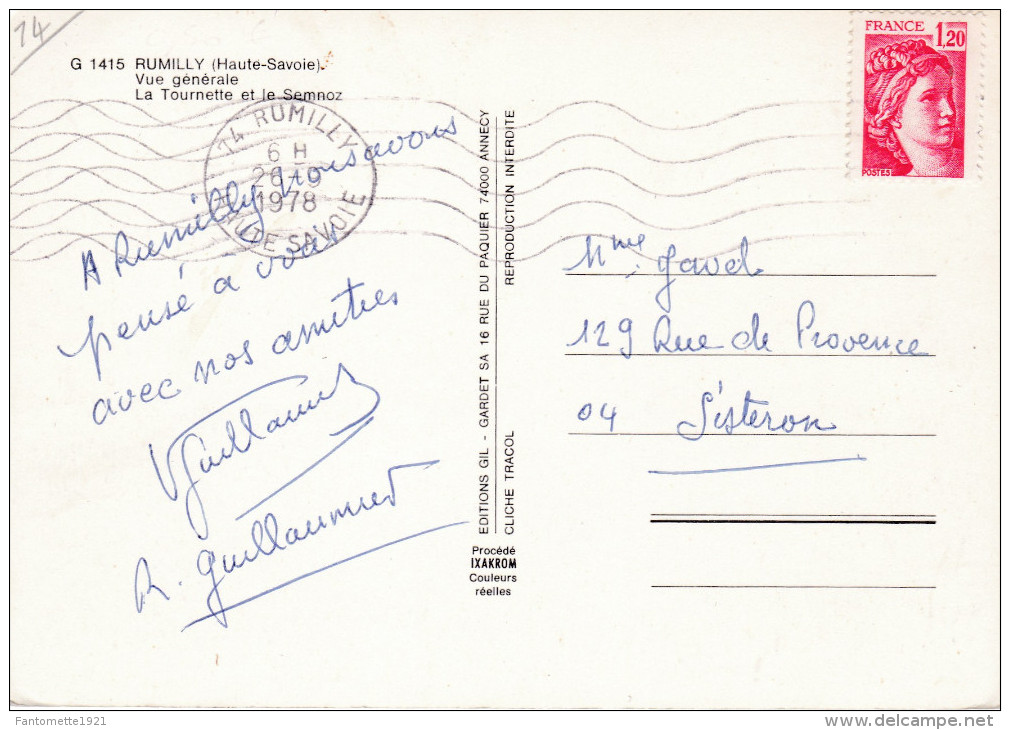 14
G 1415 RUMILLY (Haute-Savoie).
Vue générale
La Tournette et le Semnoz
74 RUMILLY
6 H
1978
HAUTE-SAVOIE
FRANCE
1,20
POSTES
A Rumilly nous avons
pensé à vous
avec nos amitiés
Guillaumet
R. Guillaumet
EDITIONS GIL - GARDET SA 16 RUE DU PAQUIER 74000 ANNECY
CLICHE TRACOL REPRODUCTION INTERDITE
Procédé
IXAKROM
Couleurs
réelles
Mme Gavel
129 Rue de Provence
04 Sisteron
Fantomette1921
delcampe.net